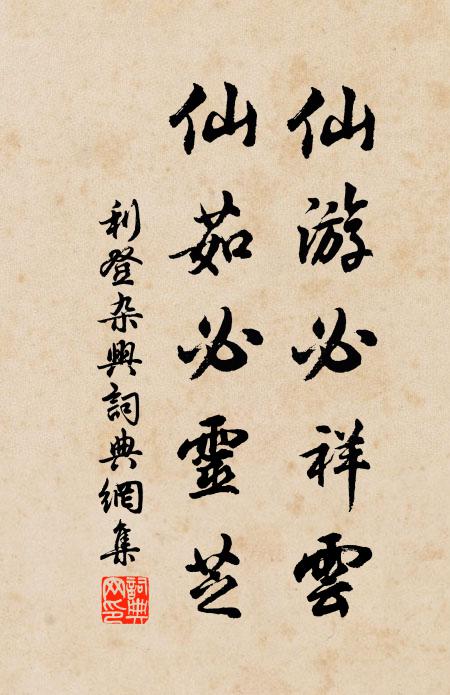 仙游必祥雲
仙茹必靈芝
利登杂興詞典網集
詞典网印